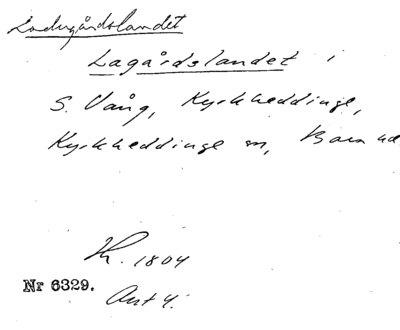 Ladugårdslandet
Lagårdslandet i
S. Vång, Kyrkheddinge,
Kyrkheddinge sn, Bara hd
K. 1804
Nr 6329.
Akt 4.